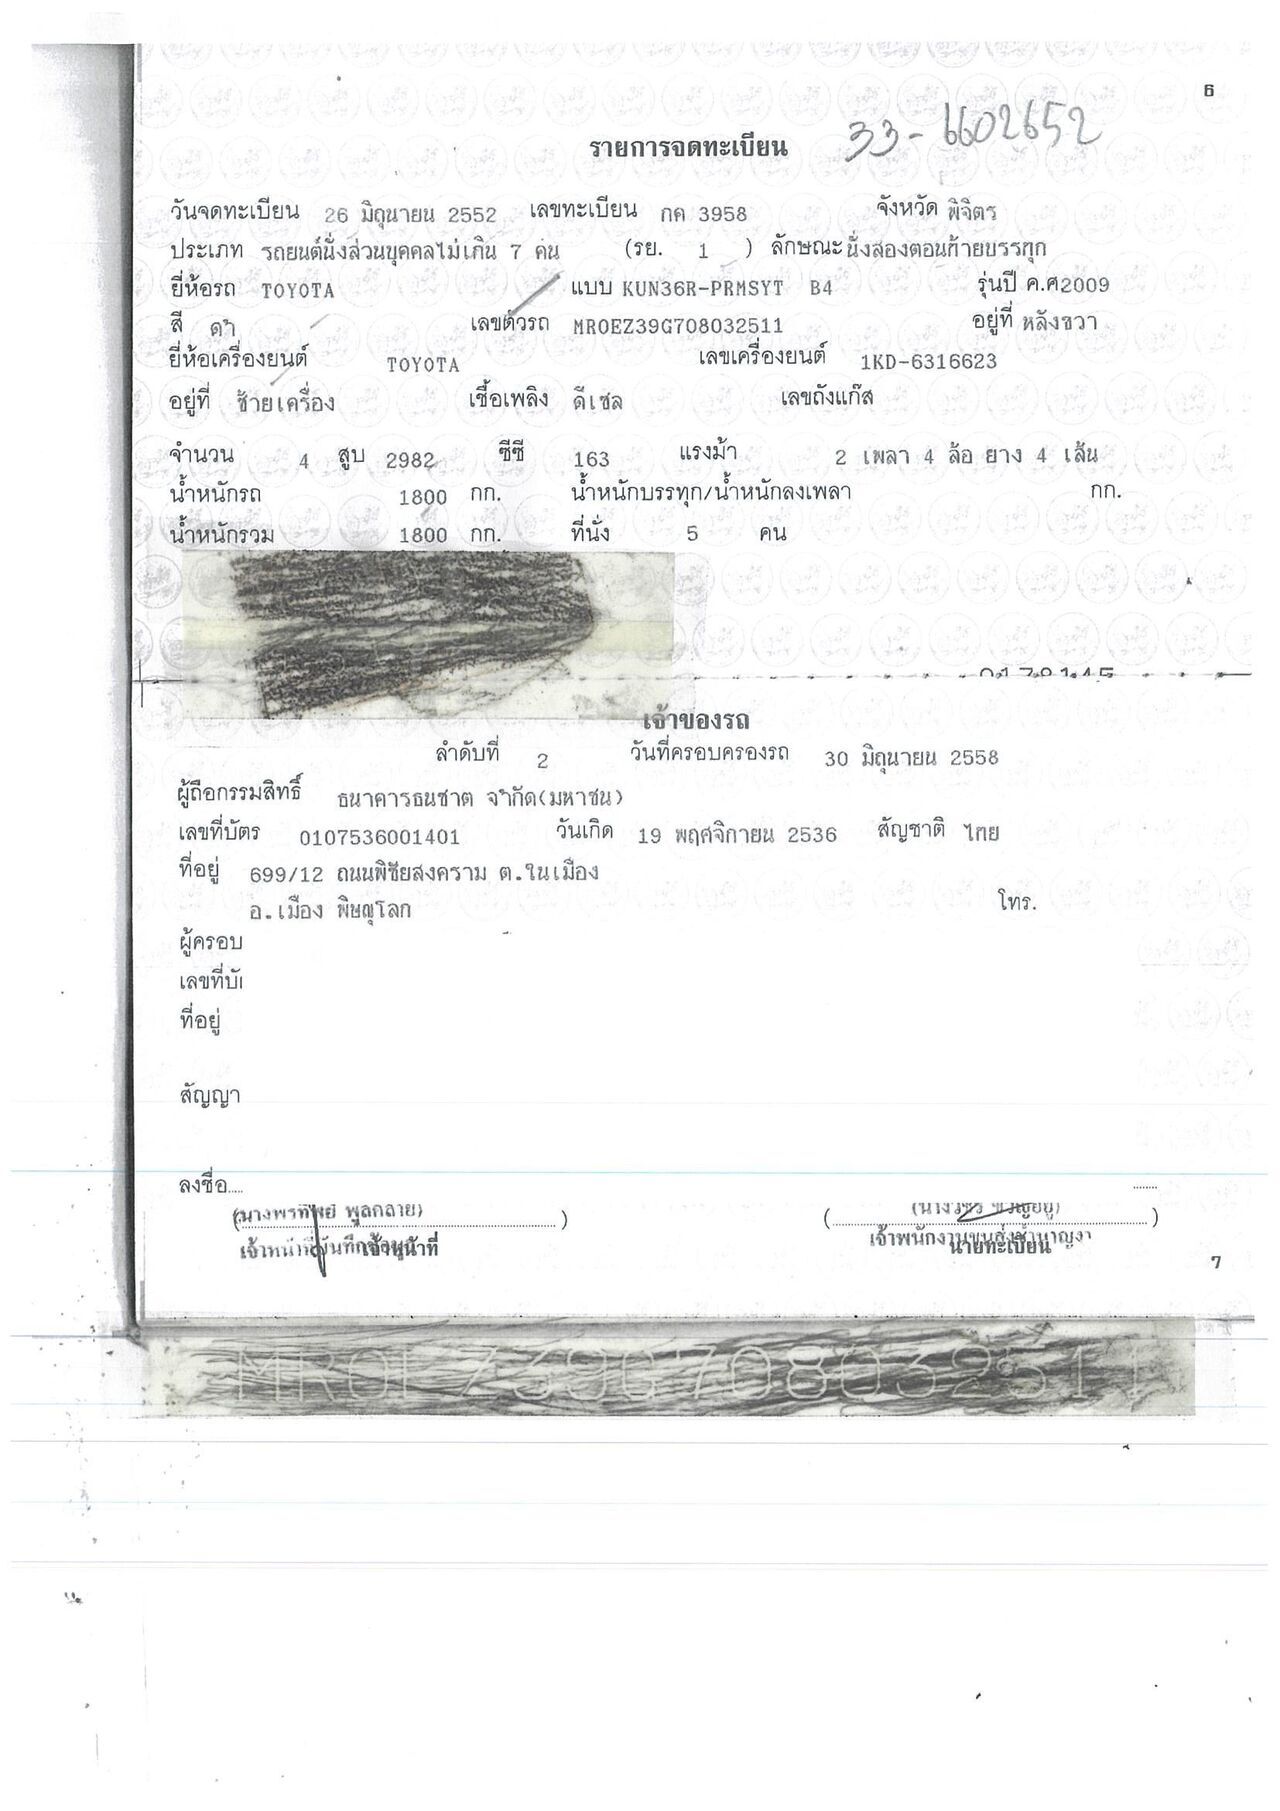 6
33-6602652
รายการจดทะเบียน
วันจดทะเบียน 26 มิถุนายน 2552 เลขทะเบียน กค 3958 จังหวัด พิจิตร
ประเภท รถยนต์นั่งส่วนบุคคลไม่เกิน 7 คน (รย. 1 ) ลักษณะ นั่งสองตอนท้ายบรรทุก
ยี่ห้อรถ TOYOTA แบบ KUN36R-PRMSYT B4 รุ่นปี ค.ศ2009
สี ดำ เลขตัวรถ MR0EZ39G708032511 อยู่ที่ หลังขวา
ยี่ห้อเครื่องยนต์ TOYOTA เลขเครื่องยนต์ 1KD-6316623
อยู่ที่ ซ้ายเครื่อง เชื้อเพลิง ดีเซล เลขถังแก๊ส
จำนวน 4 สูบ 2982 ซีซี 163 แรงม้า 2 เพลา 4 ล้อ ยาง 4 เส้น
น้ำหนักรถ 1800 กก. น้ำหนักบรรทุก/น้ำหนักลงเพลา กก.
น้ำหนักรวม 1800 กก. ที่นั่ง 5 คน
เจ้าของรถ
ลำดับที่ 2 วันที่ครอบครองรถ 30 มิถุนายน 2558
ผู้ถือกรรมสิทธิ์ ธนาคารธนชาต จำกัด(มหาชน)
เลขที่บัตร 0107536001401 วันเกิด 19 พฤศจิกายน 2536 สัญชาติ ไทย
ที่อยู่ 699/12 ถนนพิชัยสงคราม ต.ในเมือง
อ.เมือง พิษณุโลก โทร.
ผู้ครอบ
เลขที่บั
ที่อยู่
สัญญา
ลงชื่อ.....
(นางพรทิพย์ พูลกลาย) ) ( )
เจ้าหน้าที่ เจ้าพนักงานขนส่งชำนาญงา
นายทะเบียน
7